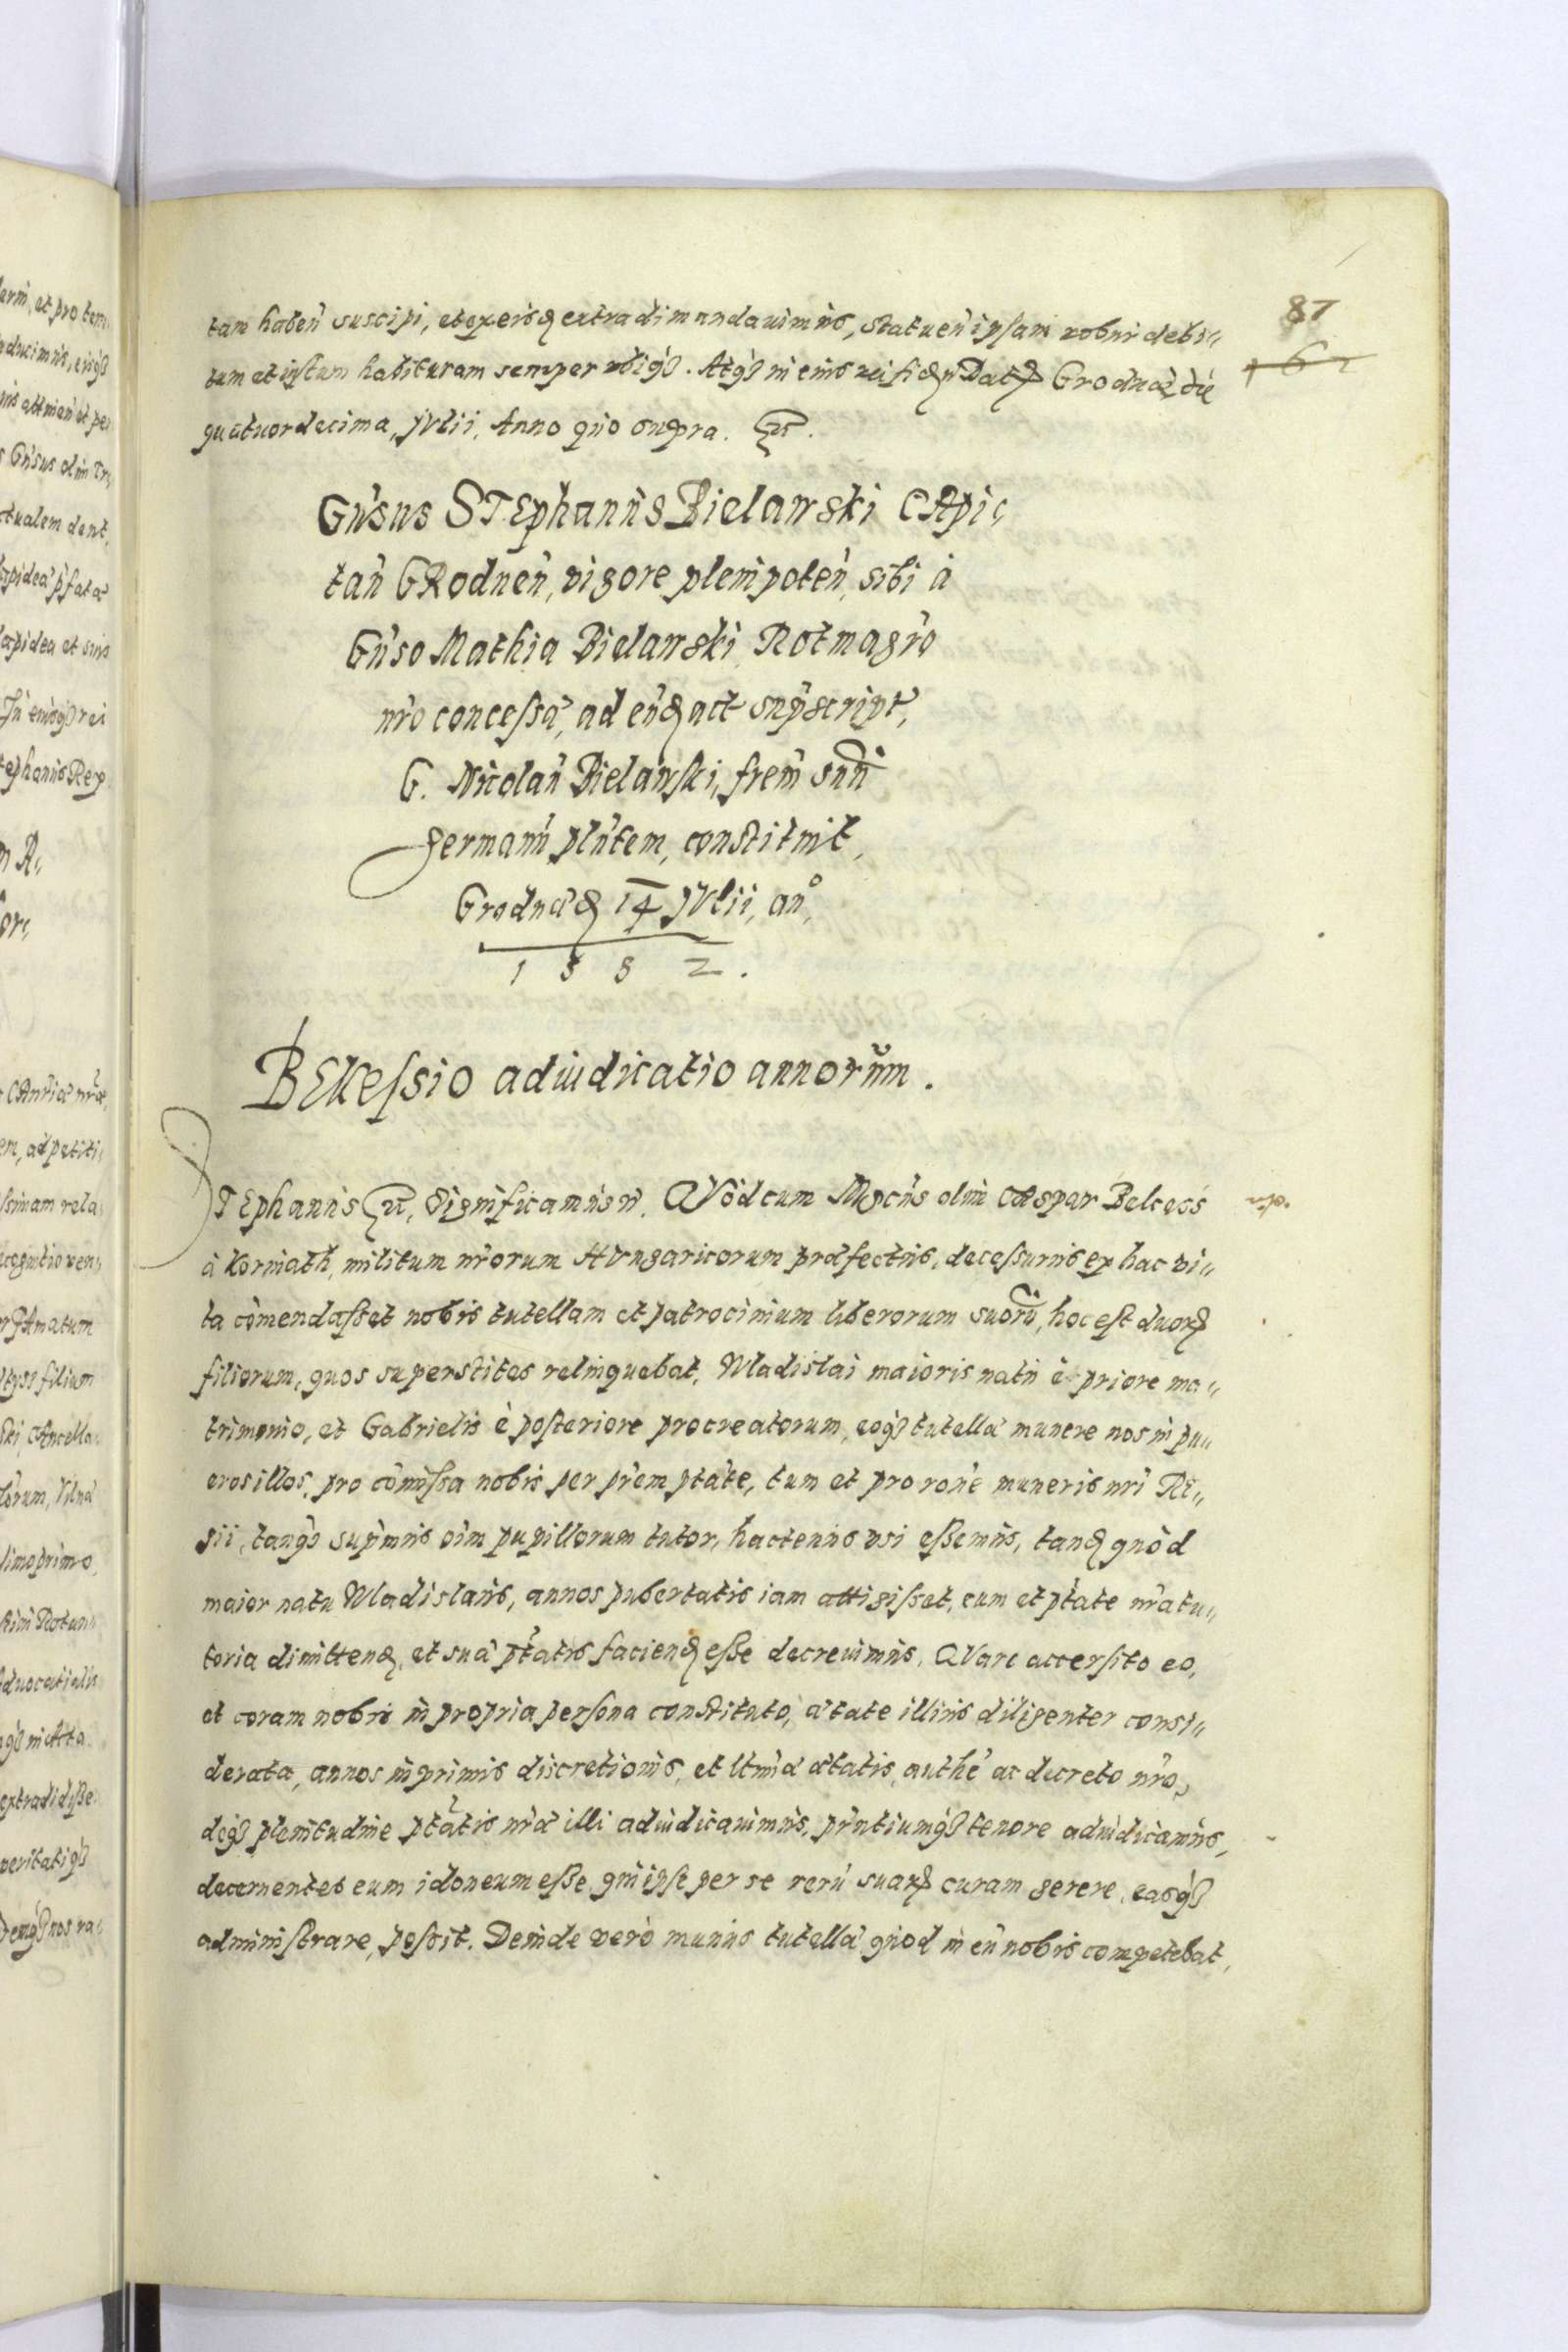 87
tam haben̄ suscipi, et ex eisdē extradi mandauimus, Statuen̄ ipsam robur debi„
tum et iustum habituram semper vbiq̨. Atq̨ in eius rei fidem Dat Grodnæ die
quatuordecima, JVlii, Anno quo supra. ꝛc.
Gn̄sus STEphanus Bielawski CApi„
tan̄ GRodnen̄, vigore plenipoten̄, sibi à
Gn̄so Mathia Bielawski Rotmagr̄o
nr̄o concessæ, ad eūd act supscript,
G. Nicolaū Bielawski, frem̄ suū
germanū pln̄tem, constituit,
Grodnæ 14 JVlii, anº,
1 5 8 2.
BEkessio adiudicatio annorum.
STEphanus ꝛc, Significamus n̄. QVòd cum Mgcus olim CAspar Bekess
à Korniath, militum nr̄orum HVngaricorum præfectus, decessurus ex hac vi„
ta cōmendasset nobis tutellam et patrocinium liberorum suorū, hoc est duorꝝ
filiorum, quos superstites relinquebat, Wladislai maioris natu è priore ma„
trimonio, et Gabrielis è posteriore procreatorum, eoq̨ tutellæ munere nos in pu„
eros illos, pro cōmissa nobis per pr̄em ptāte, tum et pro rōne muneris nr̄i RE„
gii, tanq̨ supr̄mus oīm pupillorum tutor, hactenus vsi essemus, tandē quòd
maior natu Wladislaus, annos pubertatis iam attigisset, eum et ptāte nr̄a tu„
toria dimittend, et suæ ptātis faciend esse decreuimus, QVare accersito eo,
et coram nobis in propria persona constituto, ætate illius diligenter consi„
derata, annos inprimis discretionis, et ltīmæ ætatis, authē ac decreto nr̄o,
deq̨ plenitudine ptātis nr̄æ illi adiudicauimus, pn̄tiumq̨ tenore adiudicamus,
decernentes eum idoneum esse, qui ipse per se rerū suarꝝ curam gerere, easq̨
administrare, possit. Deinde verò munus tutellæ quod in eū nobis competebat,